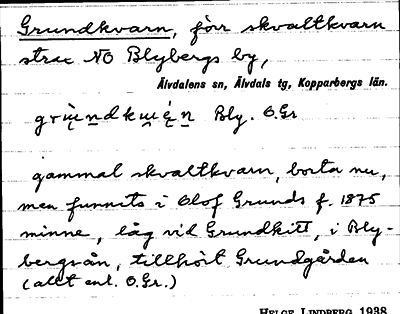 Grundkvarn, förr skvaltkvarn
strax NO Blybergs by,
Älvdalens sn, Älvdals tg, Kopparbergs län.
Bly. O.Gr
gammal skvaltkvarn, borta nu,
men funnits i Olof Grunds f. 1875
minne, låg vid Grundkitt, i Bly-
bergsån, tillhört Grundgården
(allt enl. O.Gr.)
HELGE LINDBERG 1938